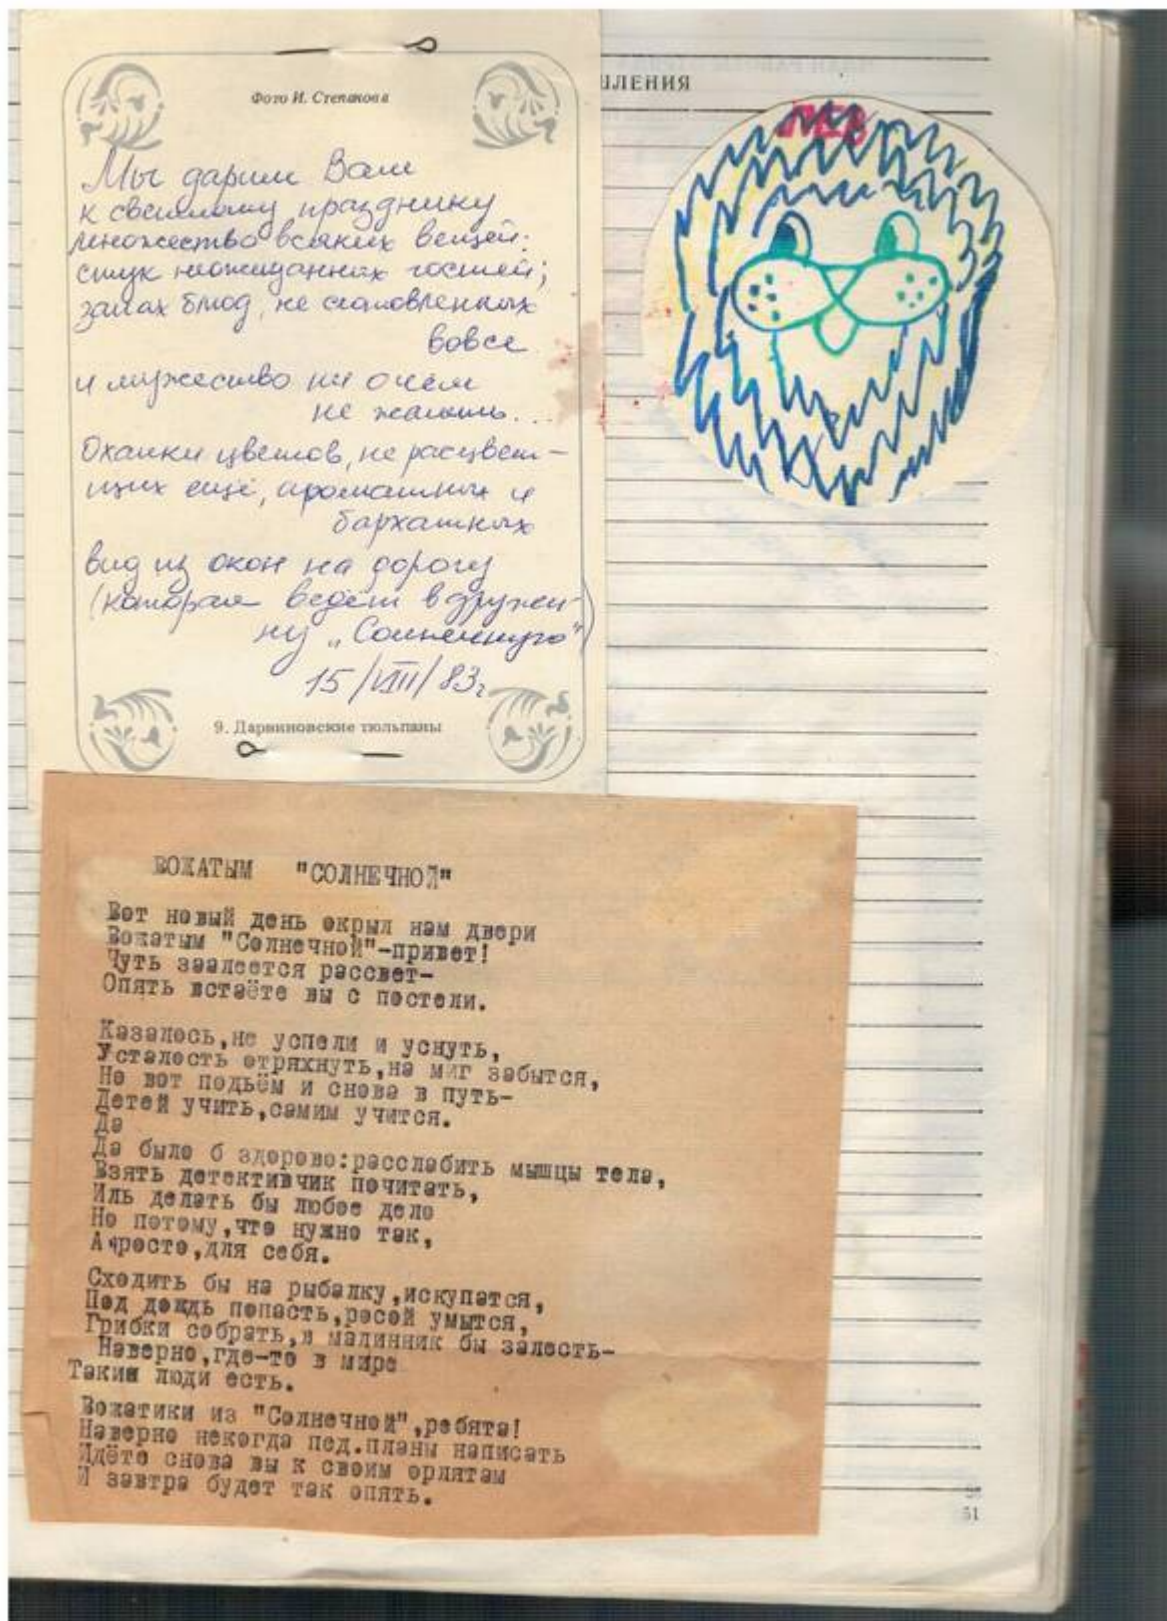 Фото И. Степанова
Мы дарим Вам
к светлому празднику
множество всяких вещей:
стук неожиданных гостей;
запах блюд, не сготовленных
вовсе
и мужество ни о чём
не жалеть...
Охапки цветов, не расцвет-
щих ещё, ароматных и
бархатных
вид из окон на дорогу
(которая ведёт в дружи-
ну „Солнечную“)
15/VIII/83г
9. Дарвиновские тюльпаны
ЛЕНИЯ
ЛЕВ
ВОЖАТЫМ "СОЛНЕЧНОЙ"
Вот новый день окрыл нам двери
Вожатым "Солнечной"-привет!
Чуть заалеется рассвет-
Опять встаёте вы с постели.
Казалось,не успели и уснуть,
Усталость отряхнуть,на миг забытся,
Но вот подъём и снова в путь-
Детей учить,самим учится.
Да
Да было б здорово:расслабить мышцы тела,
Взять детективчик почитать,
Иль делать бы любое дело
Не потому,что нужно так,
А просто,для себя.
Сходить бы на рыбалку,искупатся,
Под дождь попасть,росой умытся,
Грибки собрать,в малинник бы залесть-
Наверно,где-то в мире
Такие люди есть.
Вожатики из "Солнечной",ребята!
Наверно некогда пед.планы написать
Идёте снова вы к своим орлятам
И завтра будет так опять.
51